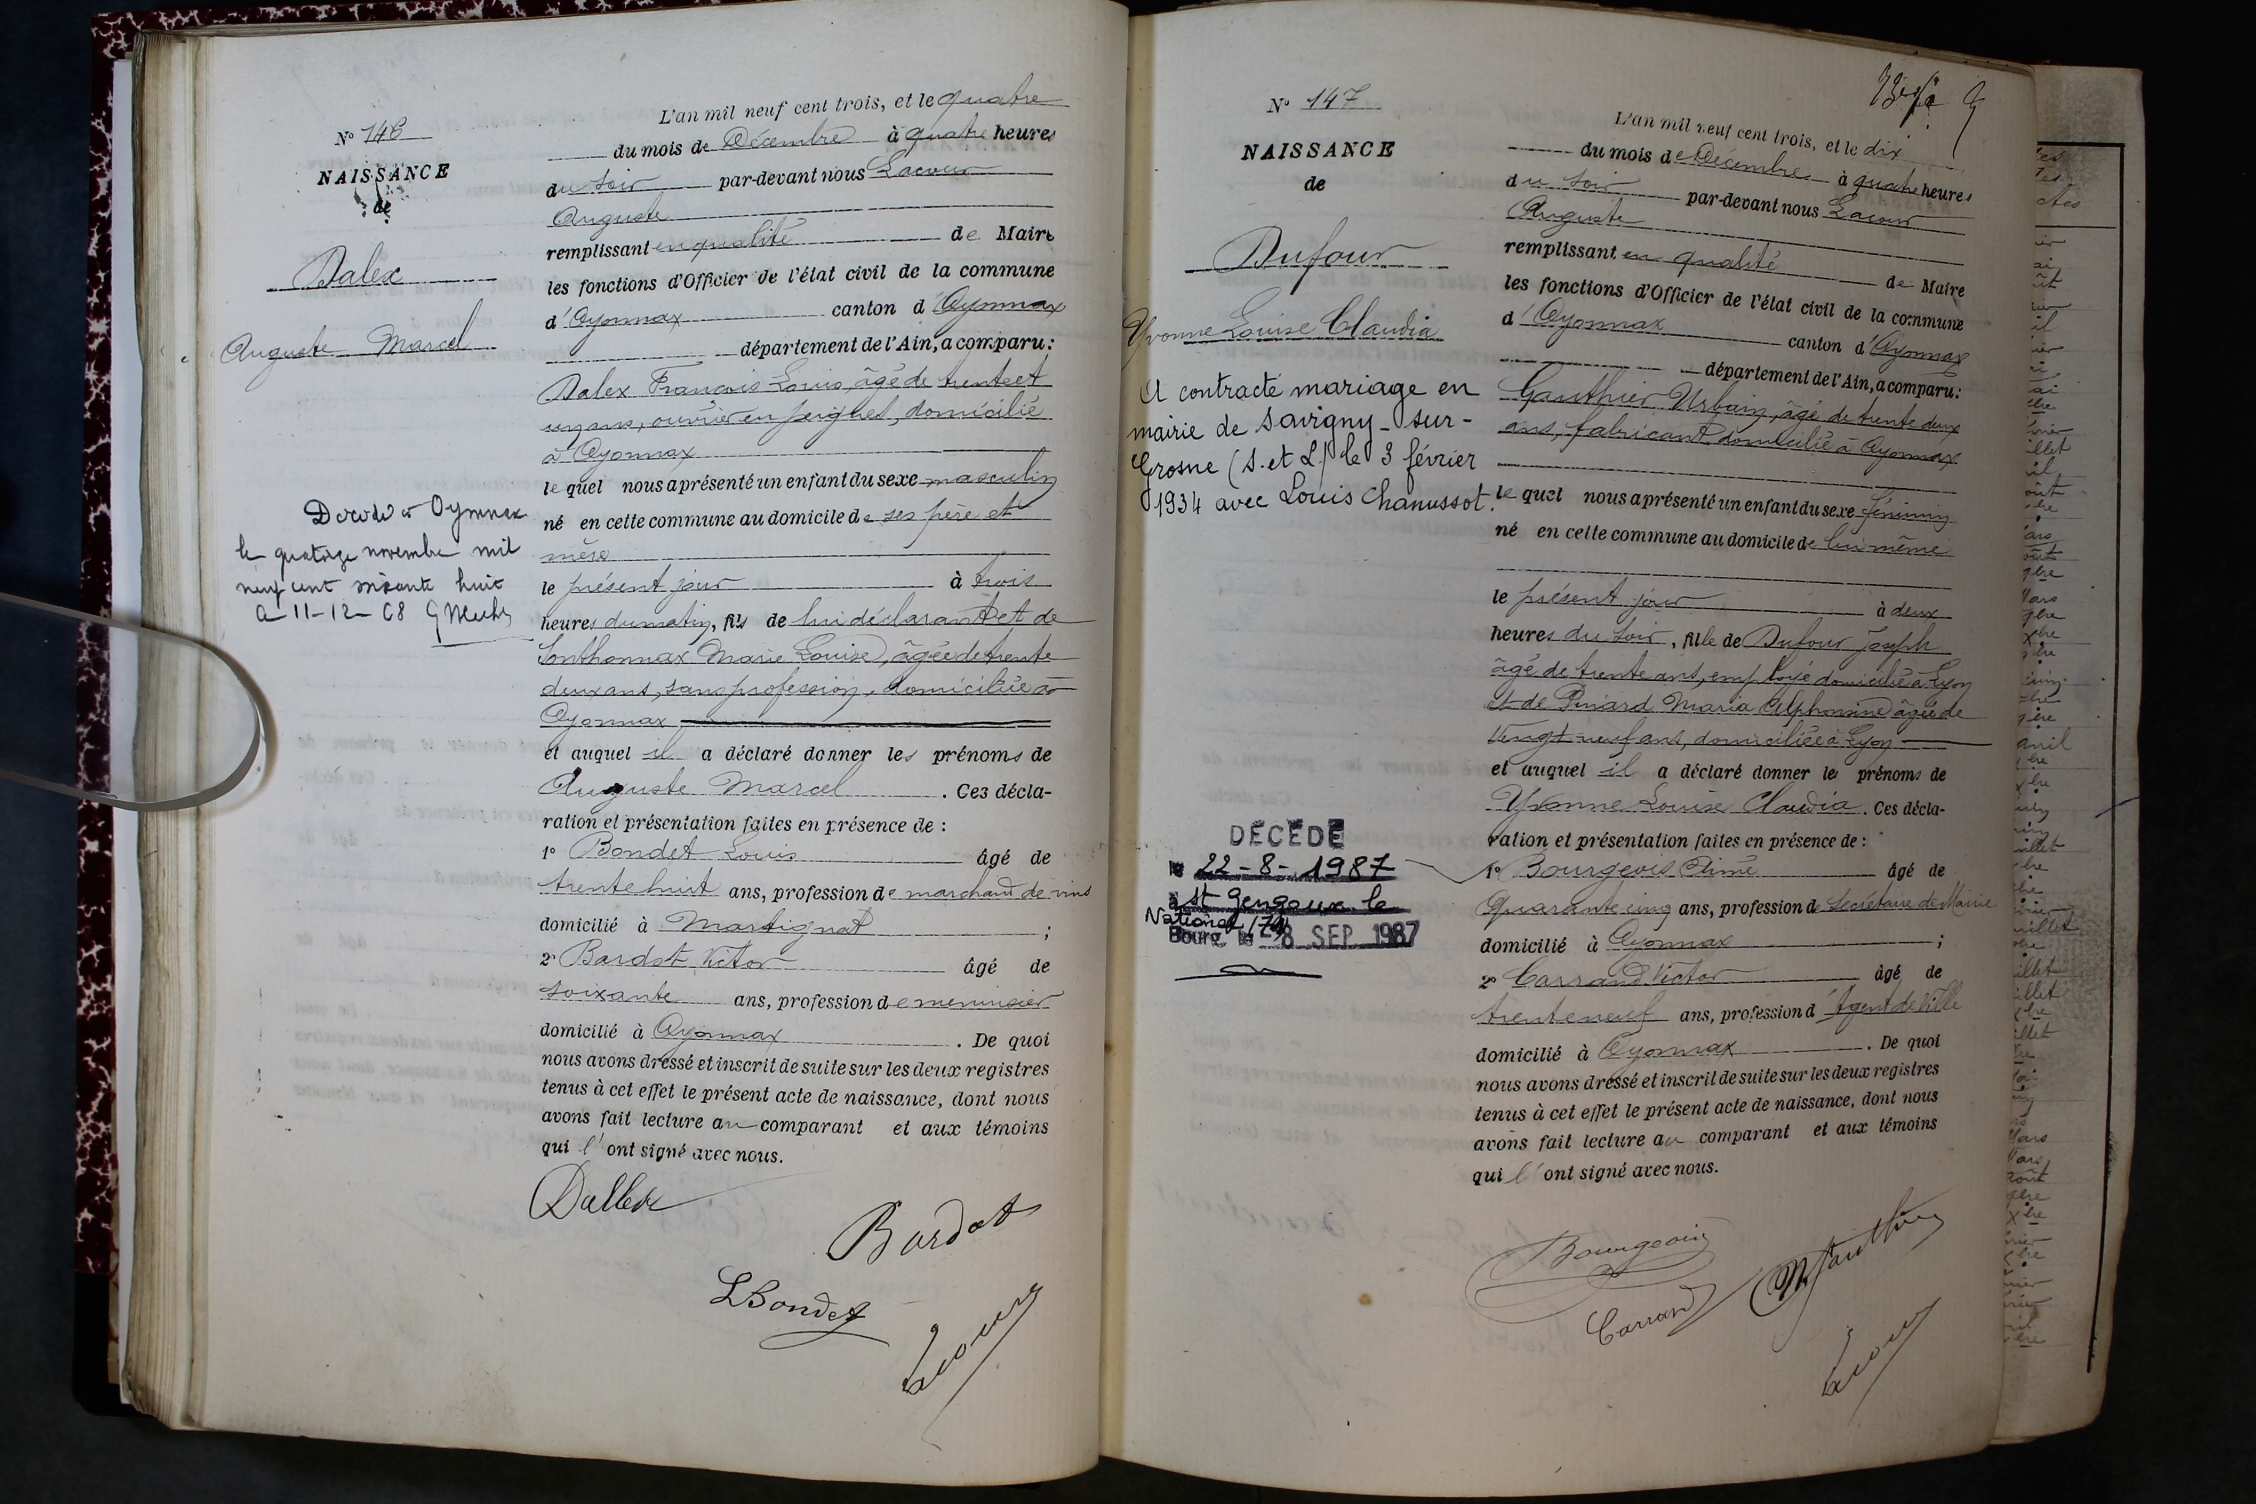 N° 146
NAISSANCE
de
Dalex
Auguste Marcel
Décédé à Oyonnax
le quatorze novembre mil
neuf cent soixante huit
11-12-68
L'an mil neuf cent trois, et le quatre
du mois de Décembre à quatre heures
du soir par-devant nous Lacour
Auguste
remplissant en qualité de Maire
les fonctions d'Officier de l'état civil de la commune
d'Oyonnax canton d'Oyonnax
département de l'Ain, a comparu :
Dalex François Louis, âgé de trente et
un ans, ouvrier en peignes, domicilié
à Oyonnax
le quel nous a présenté un enfant du sexe masculin
né en cette commune au domicile de ses père et
mère
le présent jour à trois
heures du matin, fils de lui déclarant et de
Sonthonnax Marie Louise, âgée de trente
deux ans, sans profession, domiciliée à
Oyonnax
et auquel il a déclaré donner les prénoms de
Auguste Marcel. Ces décla-
ration et présentation faites en présence de :
1° Bondet Louis âgé de
trente huit ans, profession de marchand de vins
domicilié à Martignat ;
2° Bardot Victor âgé de
soixante ans, profession de menuisier
domicilié à Oyonnax. De quoi
nous avons dressé et inscrit de suite sur les deux registres
tenus à cet effet le présent acte de naissance, dont nous
avons fait lecture au comparant et aux témoins
qui l'ont signé avec nous.
Dallex
Bardot
LBondet
Lacour
N° 147
NAISSANCE
de
Dufour
Yvonne Louise Claudia
A contracté mariage en
mairie de Savigny-sur-
Grosne (S. et L.) le 3 février
1934 avec Louis Chanussot.
DÉCÉDÉ
le 22-8-1987
à St Gengoux le
National (71)
Bourg, le 8 SEP. 1987
L'an mil neuf cent trois, et le dix
du mois de Décembre à quatre heures
du soir par-devant nous Lacour
Auguste
remplissant en qualité de Maire
les fonctions d'Officier de l'état civil de la commune
d'Oyonnax canton d'Oyonnax
département de l'Ain, a comparu :
Gauthier Urbain, âgé de trente deux
ans, fabricant, domicilié à Oyonnax
le quel nous a présenté un enfant du sexe féminin
né en cette commune au domicile de lui même
le présent jour à deux
heures du soir, fille de Dufour Joseph
âgé de trente ans, employé domicilié à Lyon
et de Pinard Maria Alphonsine âgée de
vingt-neuf ans, domiciliée à Lyon
et auquel il a déclaré donner les prénoms de
Yvonne Louise Claudia. Ces décla-
ration et présentation faites en présence de :
1° Bourgeois Aimé âgé de
quarante cinq ans, profession de Secrétaire de Mairie
domicilié à Oyonnax ;
2° Carrand Victor âgé de
trente neuf ans, profession d'Agent de Ville
domicilié à Oyonnax. De quoi
nous avons dressé et inscrit de suite sur les deux registres
tenus à cet effet le présent acte de naissance, dont nous
avons fait lecture au comparant et aux témoins
qui l'ont signé avec nous.
Bourgeois
Gauthier
Carrand
Lacour